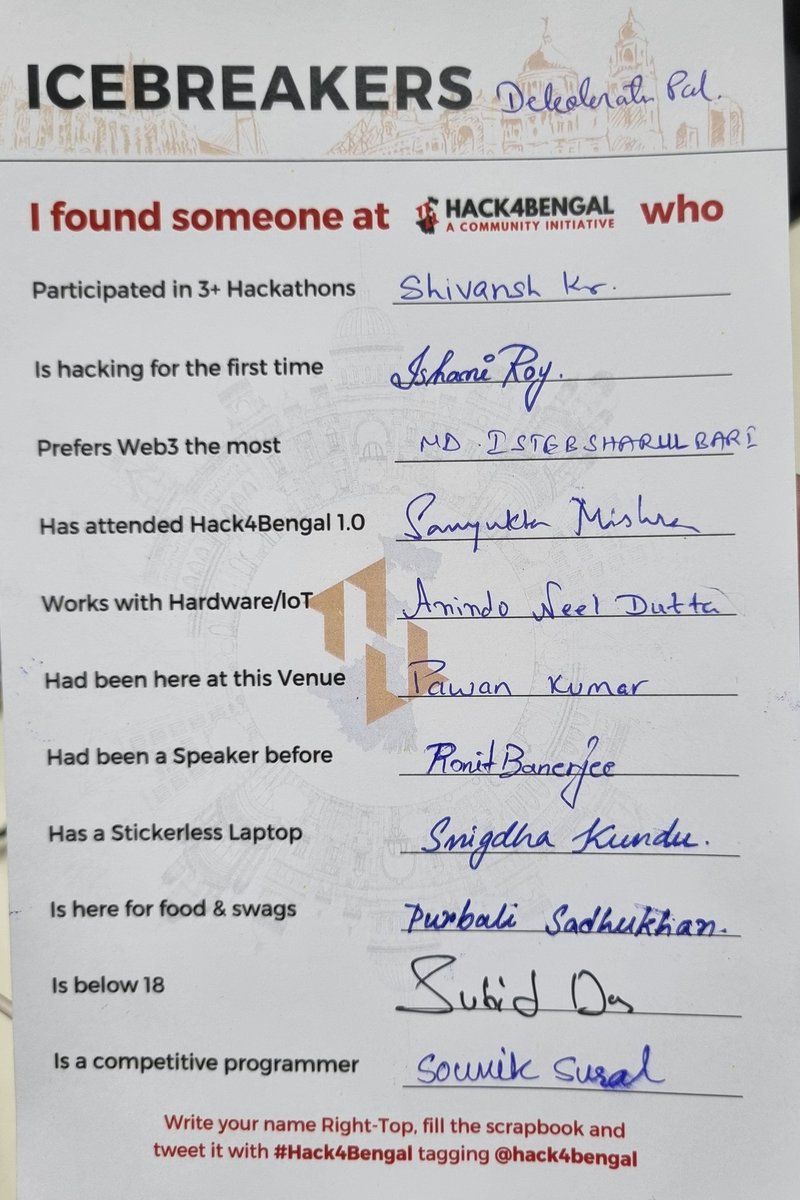 ICEBREAKERS Pal.
I found someone at HACK4BENGAL who
A COMMUNITY INITIATIVE
Participated in 3+ Hackathons Shivansh Kr.
Is hacking for the first time Ishani Roy.
Prefers Web3 the most MD. ISTEBSHARUL BARI
Has attended Hack4Bengal 1.0 Sanyukta Mishra
Works with Hardware/IoT Anindo Neel Dutta
Had been here at this Venue Pawan Kumar
Had been a Speaker before Ronit Banerjee
Has a Stickerless Laptop Snigdha Kundu.
Is here for food & swags Purbali Sadhukhan.
Is below 18 Subid Das
Is a competitive programmer Sounik Sural
Write your name Right-Top, fill the scrapbook and
tweet it with #Hack4Bengal tagging @hack4bengal